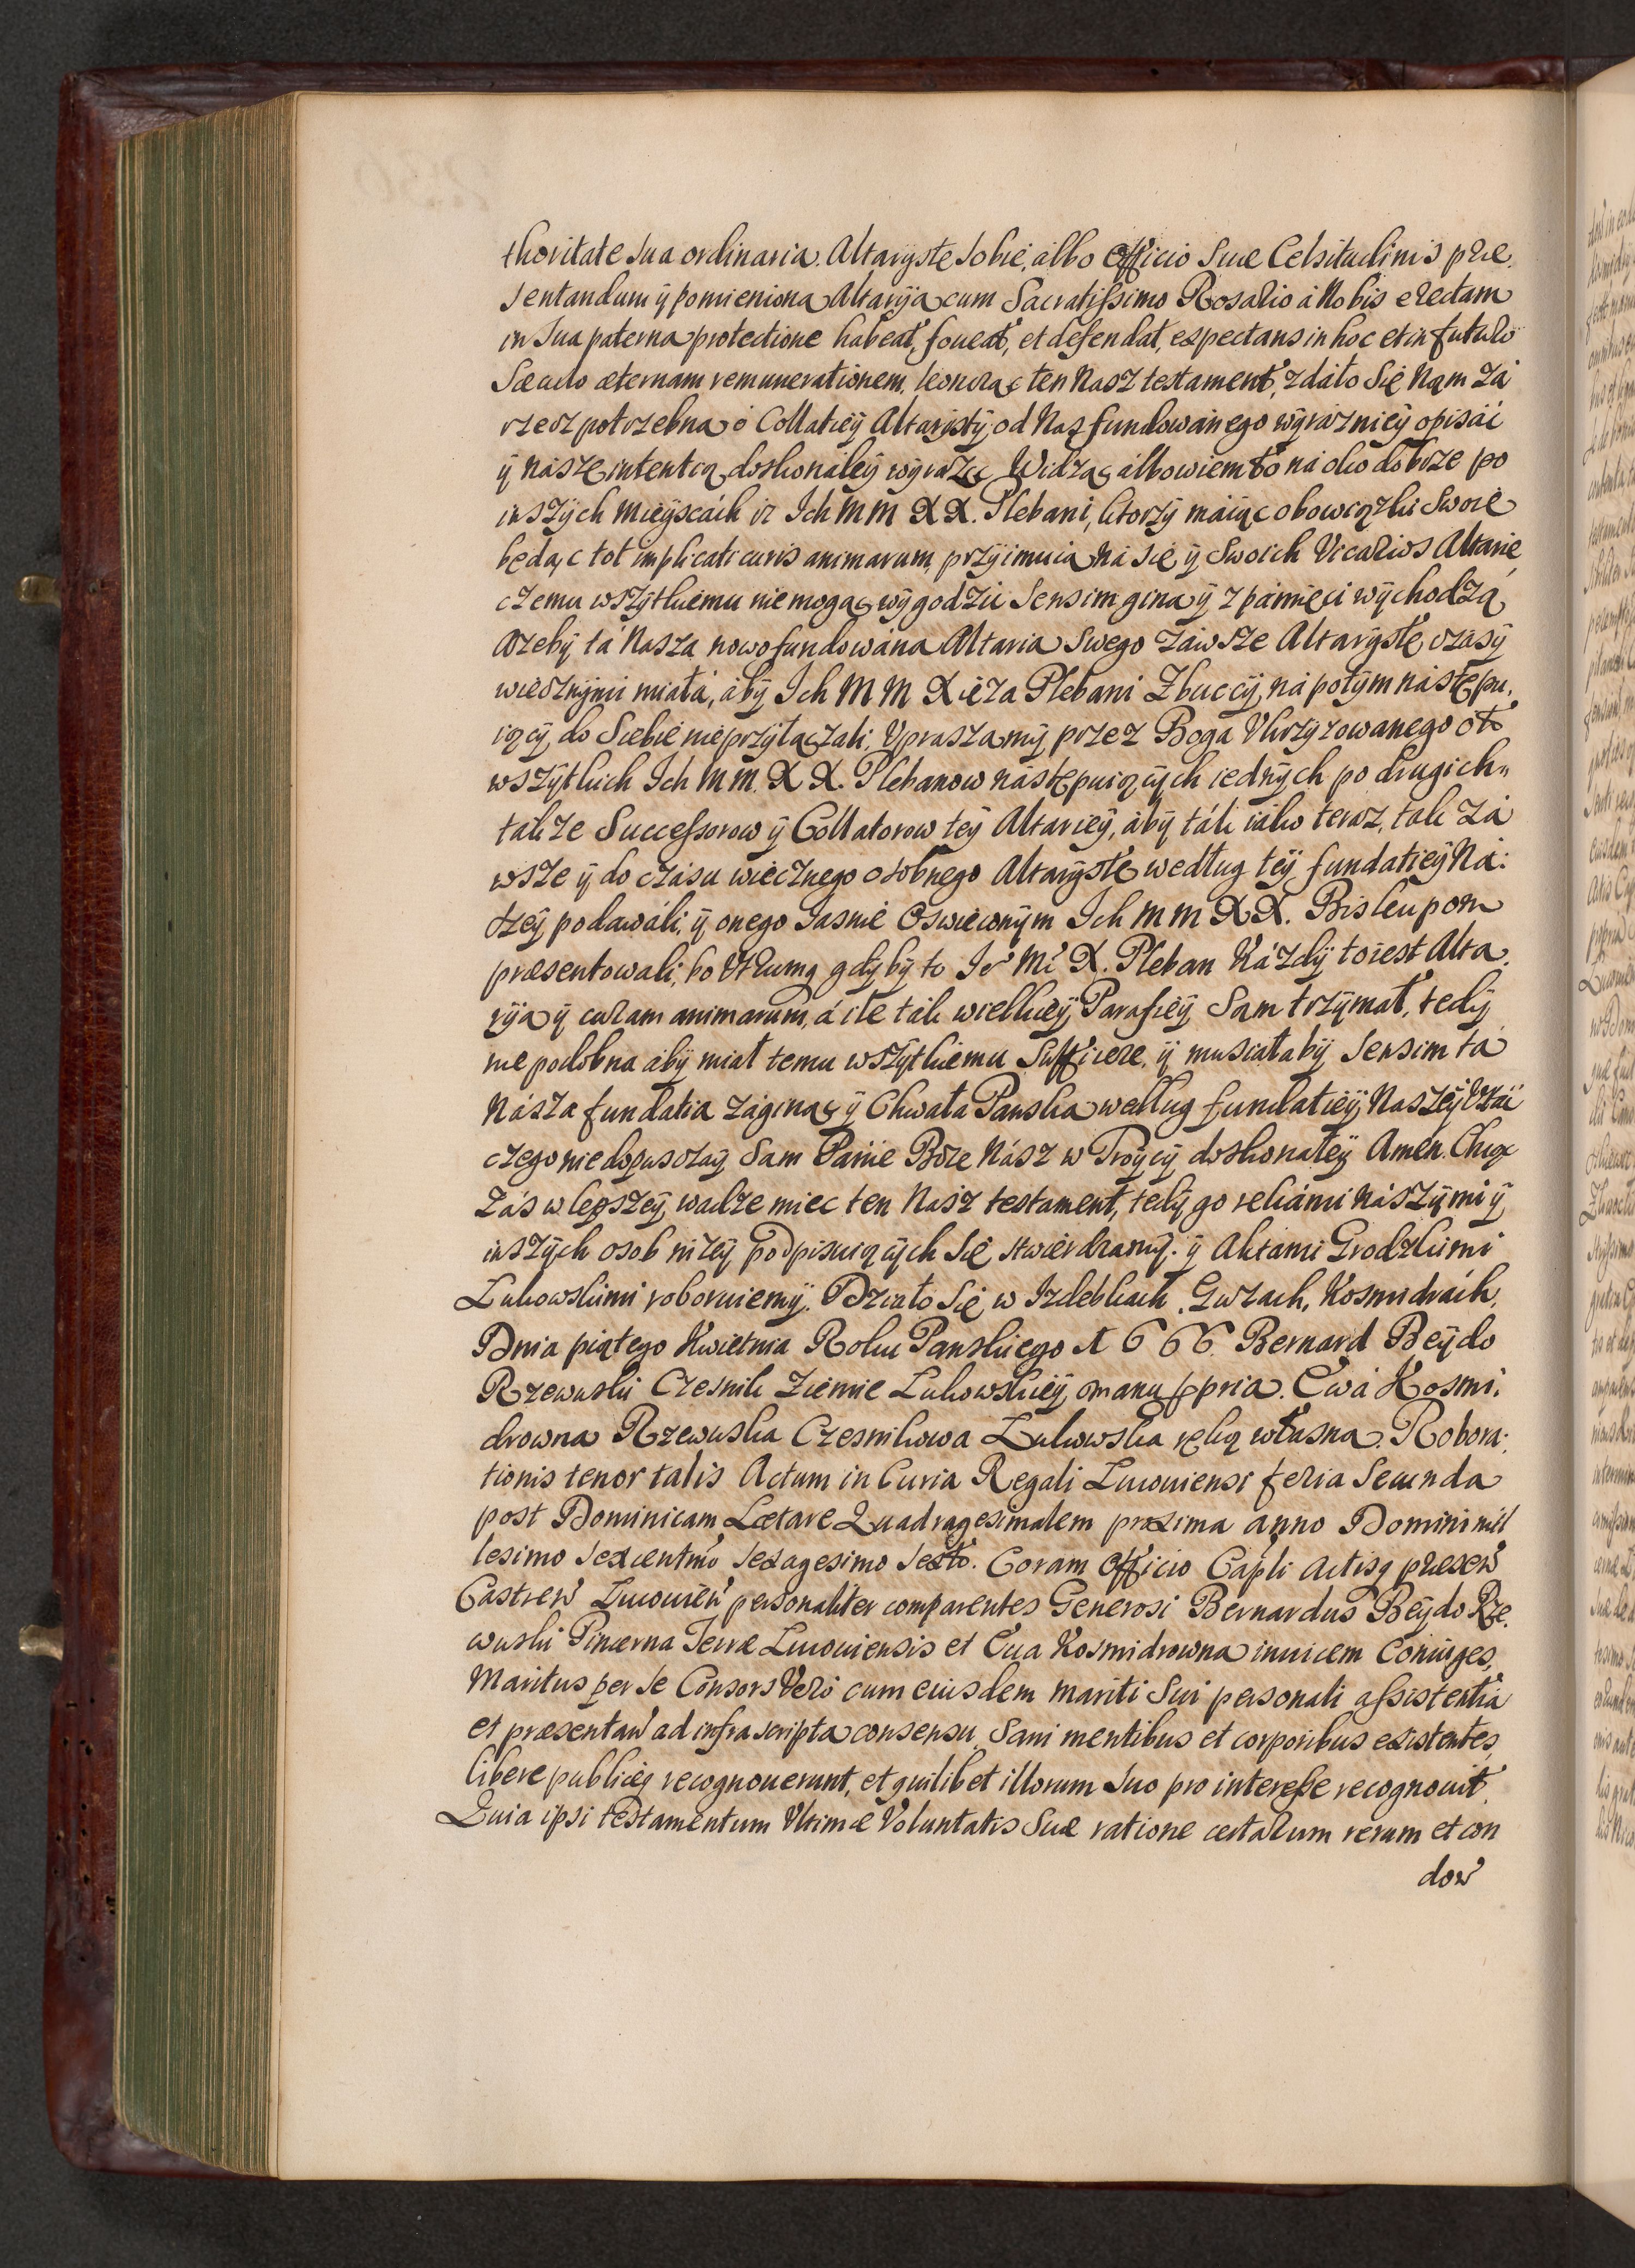 thoritate sua ordinaria. Altarystę sobie, albo Officio Suæ Celsitudinis præ.
sentandum ÿ pomieniona Altaryja cum Sacratissimo Rosario á Nobis erectam
in sua paterna protectione habeat, foueat, et defendat, expectans in hoc et in futuro
Sæculo æternam remunerationem. koncząc ten Nasz testament, zdało Się Nąm zá
rzecz potrzebna o Collaticÿ Altarÿstÿ od Nas fundowánego wÿrázniéÿ opisáć
ÿ násze intentią doskonáleÿ wÿrázić, Widząc álbowiem to ná oko dobrze po
inszÿch mieÿscách iż Ich M M X X. Plebani, ktorzÿ máiąc obowiązki Swoie
będąc tot implicati curis animarum, przÿimuia ná się ÿ Swoich Vicarios Altarie
czemu wszÿtkiemu nie mogąc wÿgodzić Sensim gina ÿ z pámięci wÿchodzą
Ażebÿ tá Nasza nowo fundowána Altaria Swego záwsze Altarÿstę czasÿ
wiecznÿmi miałá, ábÿ Ich M M Xięża Plebani Zbuccÿ, ná potÿm nástępu,
iącÿ, do Siebie nie przÿłączali. Vpraszamÿ, przez Boga Vkrzyzowanego oto
wszÿtkich Ich M M. X X. Plebanow nástępuiącÿch iednÿch po drugich"
tákze Successorow ÿ Collatorow teÿ Altarieÿ, ábÿ ták iáko teraz, tak zá
wsze ÿ do czásu wiecznego osobnego Altarÿstę według teÿ fundatieÿ Ná:
szeÿ podawáli, ÿ onego Iasnie Oswieconÿm Ich M M X X. Biskupom
præsentowali, bo gdÿbÿ to Ie° Mć X. Pleban Káżdÿ to iest Alta.
ryja ÿ curam animarum, á ile ták wielkieÿ Parafieÿ Sam trzÿmał, tedÿ
nie podobna ábÿ miał temu wszÿtkiemu Sufficere, ÿ musiałabÿ Sensim tá
Násza fundatia záginąć ÿ Chwała Panska według fundatieÿ Naszeÿ Vstáć
czego nie dopuszczaÿ Sam Panie Boże Nász w Troÿcÿ doskonałeÿ Amen. Chcąc
Zás w lepszeÿ wadze miec ten Nász testament, tedÿ go rekámi nászÿmi ÿ
inszÿch osob niżeÿ podpisuiącÿch Się stwierdzamÿ. ÿ Aktámi Grodzkimi
Łukowskimi roboruiemÿ. Działo Się w Izdebkach, Guzach, Kosmidrách,
Dnia piątego Kwietnia Roku Panskiego 1666. Bernard Beÿdo
Rzewuski Czesnik Ziemie Łukowskieÿ manu ppria. Ewá Kosmi.
drowna Rzewuska Czesnikowa Łukowska ręką własna. Robora:
tionis tenor talis Actum in Curia Regali Lucouiensi feria Secunda
post Dominicam Lætare Quadragesimalem proxima anno Domini mil
lesimo sexcentmo sexagesimo sexto. Coram Officio Capli Actisq præsen
Castren Lucouien personaliter comparentes Generosi Bernardus Beÿdo Rze.
wuski Pincerna Terræ Lucouiensis et Ewa Kosmidrowna inuicem Coniuges,
Maritus per se Consors Vero cum eiusdem mariti Sui personali assistentia
et præsentan ad infrascripta consensu, Sani mentibus et corporibus existentes,
libere publiceq recognouerunt, et quilibet illorum suo pro interesse recognouit.
Quia ipsi testamentum Vltimæ Voluntatis Suæ ratione certarum rerum et con
don